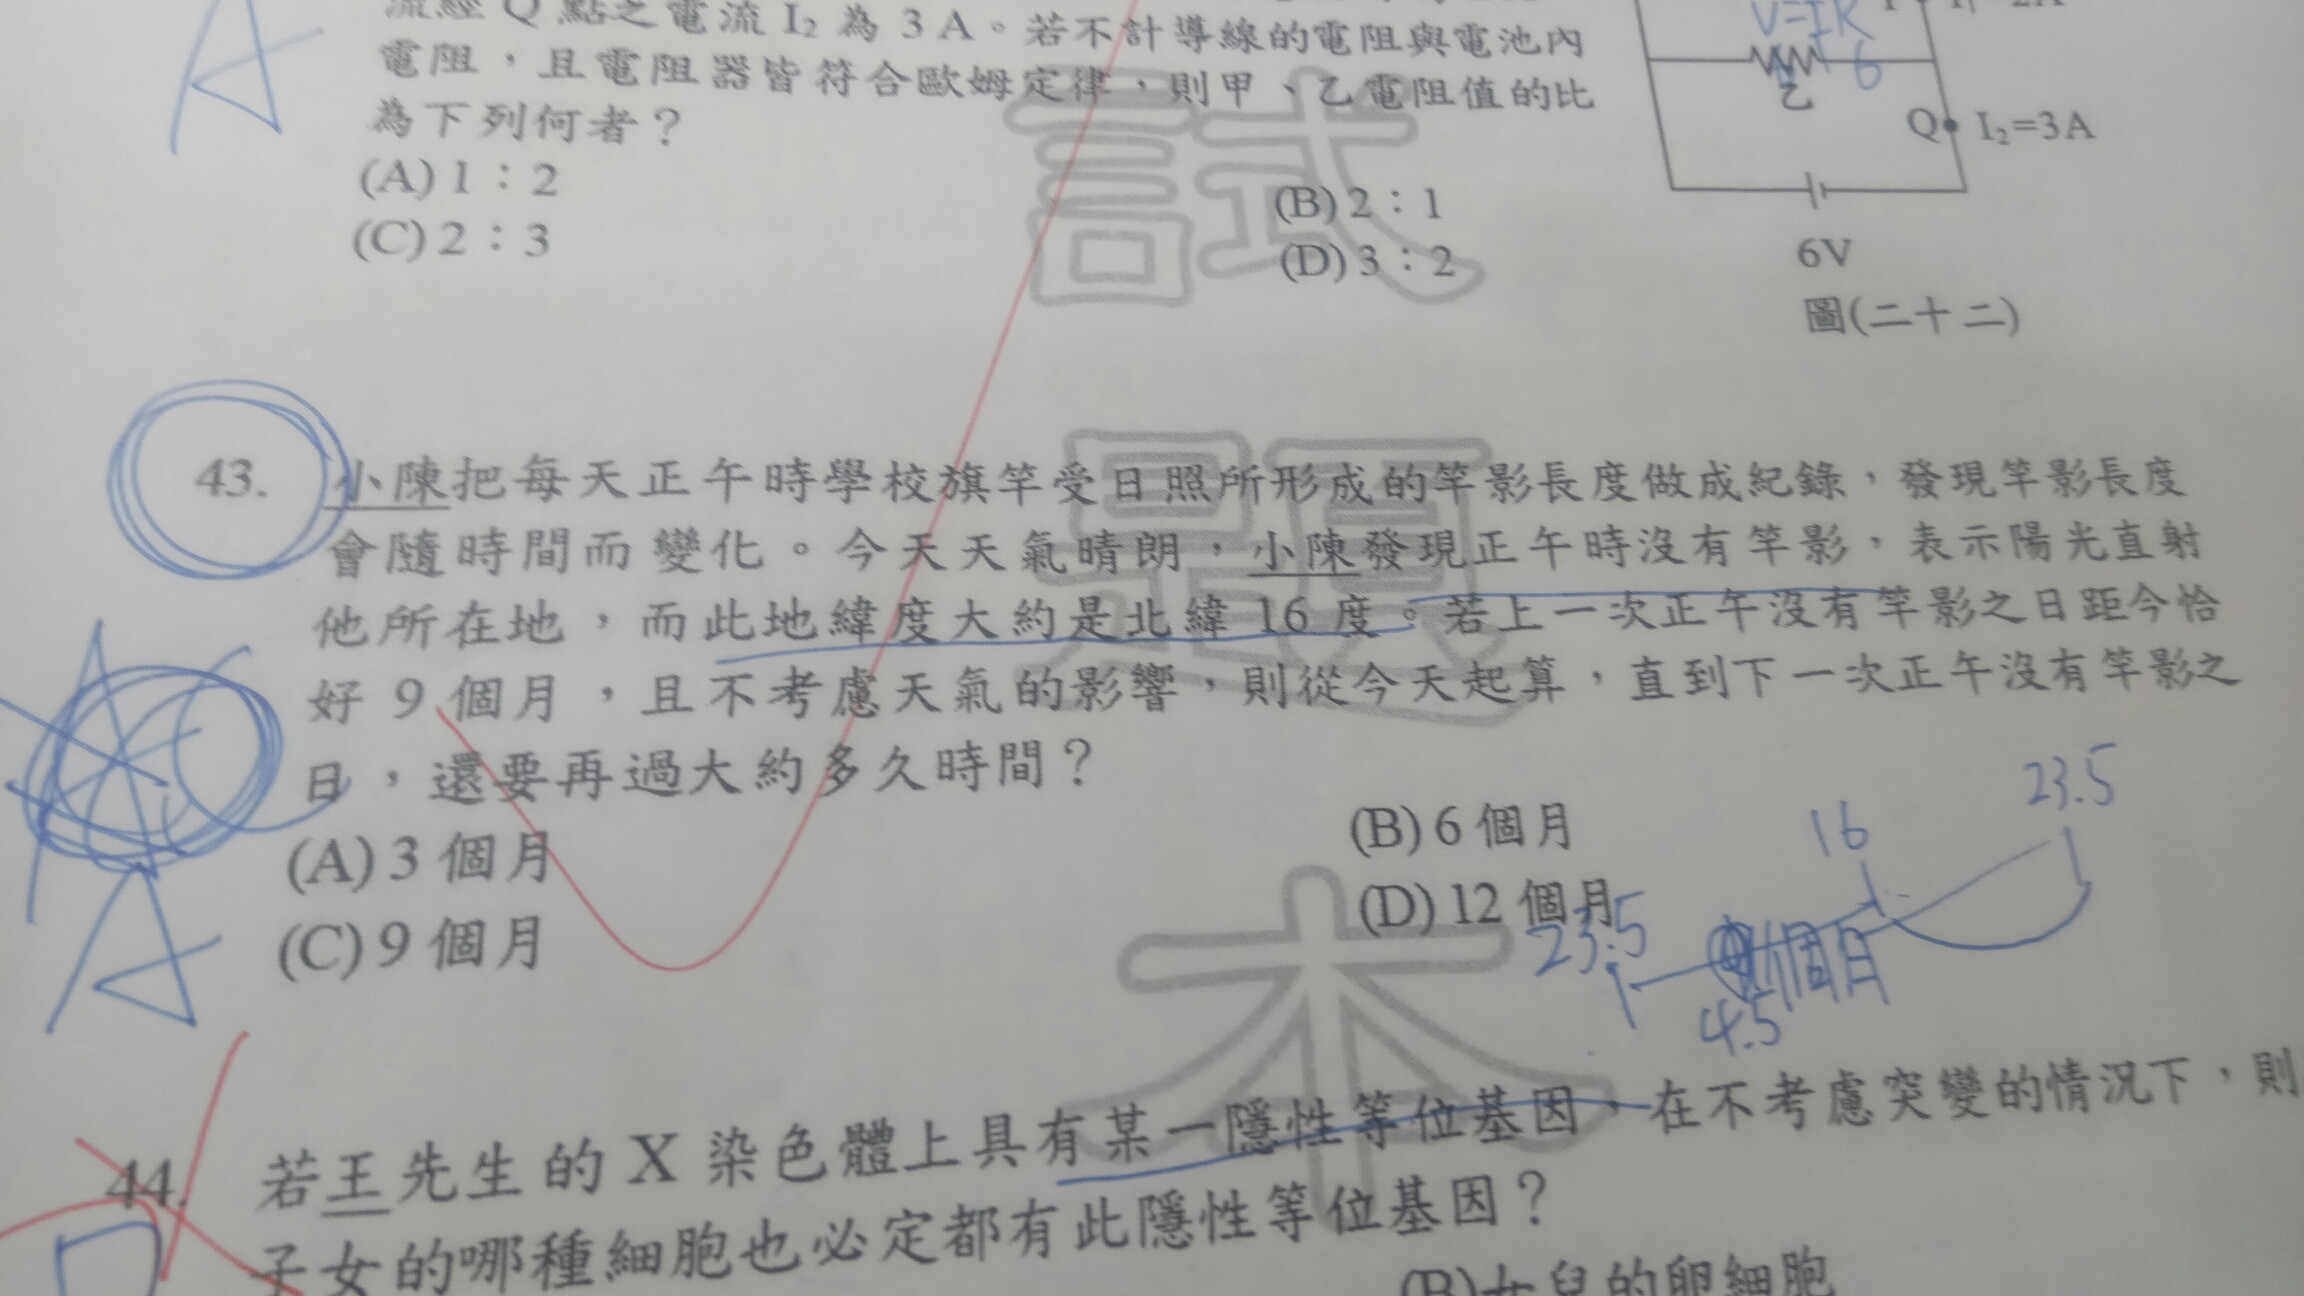 流經 Q 點之電流 I₂ 為 3 A。若不計導線的電阻與電池內
電阻,且電阻器皆符合歐姆定律,則甲、乙電阻值的比
為下列何者?
(A) 1:2
(B) 2:1
(C) 2:3
(D) 3:2
V=IR
6
乙
Q
I₂=3A
6V
圖(二十二)
A
43. 小陳把每天正午時學校旗竿受日照所形成的竿影長度做成紀錄,發現竿影長度
會隨時間而變化。今天天氣晴朗,小陳發現正午時沒有竿影,表示陽光直射
他所在地,而此地緯度大約是北緯 16 度。若上一次正午沒有竿影之日距今恰
好 9 個月,且不考慮天氣的影響,則從今天起算,直到下一次正午沒有竿影之
日,還要再過大約多久時間?
(A) 3 個月
(B) 6 個月
(C) 9 個月
(D) 12 個月
A
23.5
16
23.5
個月
4.5
試
題
本
44. 若王先生的 X 染色體上具有某一隱性等位基因,在不考慮突變的情況下,則
子女的哪種細胞也必定都有此隱性等位基因?
(B)女兒的卵細胞